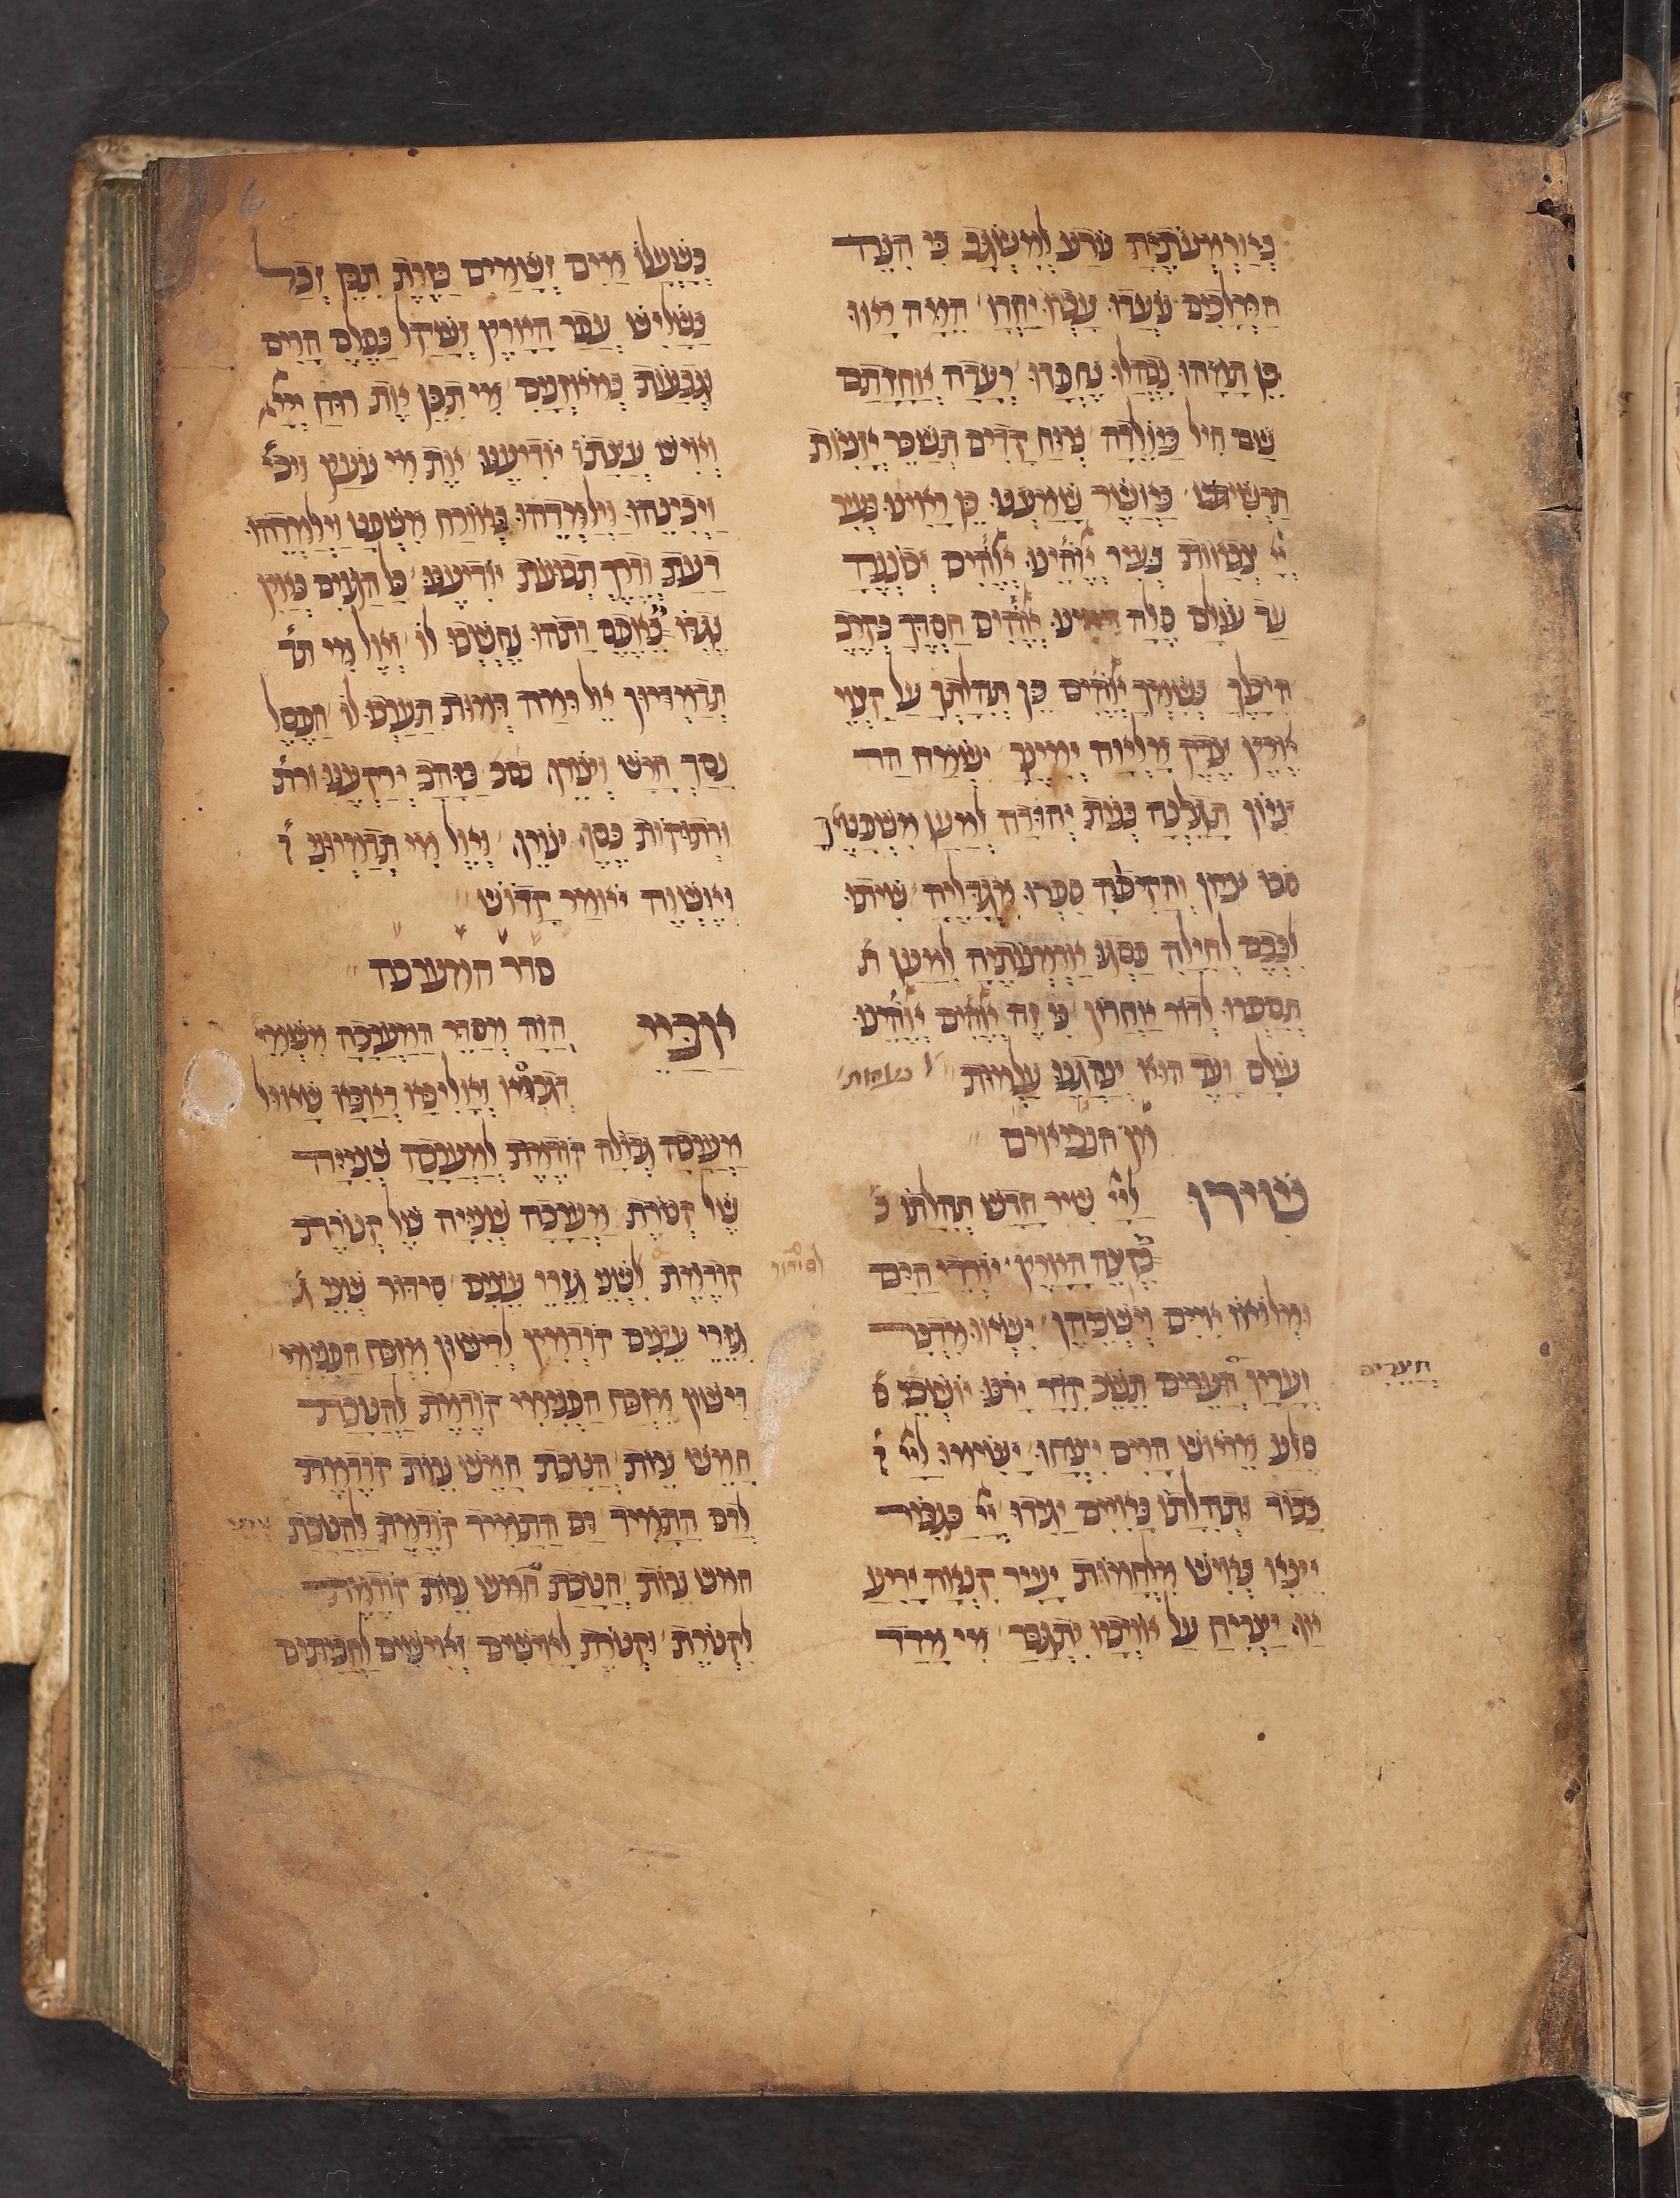 בארמנתיה נודע למשגב כי הנה
המלכים נועדו עברו יחדו המה ראו
כן תמהו נבהלו נחפזו רעדה אחזתם
שם חיל כיולדה ברוח קדים תשבר אניות
תרשיש כאשר שמענו כן ראינו בעיר
יי צבאות בעיר אלהינו אלהים יכוננה
עד עולם סלה דמינו אלהים חסדך בקרב
היכלך כשמך אלהים כן תהלתך על קצוי
ארץ צדק מלאה ימינך ישמח הר
ציון תגלנה בנות יהודה למען משפטיך
סבו ציון והקיפוה ספרו מגדליה שיתו
לבכם לחילה פסגו ארמנותיה למען ת
תספרו לדור אחרון כי זה אלהים אלהינו
עולם ועד הוא ינהגנו עלמות
מן הנביאים
שירו ליי שיר חדש תהלתו מ
מקצה הארץ יורדי הים
ומלואו איים וישביהן ישאו מדבר
ועריו חצרים תשב קדר ירנו יושבי ס
סלע מראש הרים יצוחו ישימו ליי כ
כבוד ותהלתו באיים יגידו יי כגבור
יצא כאיש מלחמות יעיר קנאה יריע
אף יצריח על אויביו יתגבר מי מדד
חצרים
בשעלו מים ושמים בזרת תכן וכל
בשליש עפר הארץ ושקל בפלס הרים
וגבעות במאזנים מי תכן את רוח יי
ואיש עצתו יודיענו את מי נועץ ויב
ויבינהו וילמדהו באורח משפט וילמדהו
דעת ודרך תבונות יודיענו כל הגוים כאין
נגדו מאפס ותהו נחשבו לו ואל מי תד
תדמיון אל ומה דמות תערכו לו הפסל
נסך חרש וצורף בזהב ירקענו ורת
ורתוקות כסף צורף ואל מי תדמיוני ו
ואשוה יאמר קדוש
סדר המערכה
אביי הוה מסדר המערכה משמי
דגמרא ואליבא דאבא שאול
מערכה גדולה קודמת למערכה שניה
של קטורת מערכה שניה של קטורת
קודמת לשני גזרי עצים סידור שני ג
גזרי עצים קודמין לדישון מזבח הפנימי
דישון מזבח הפנימי קודמת להטבת
חמש נרות הטבת חמש נרות קודמת
לדם התמיד דם התמיד קודמת להטבת
חמש נרות הטבת חמש נרות קודמת
לקטורת וקטורת לאישים ואישים לחביתים
לסידור